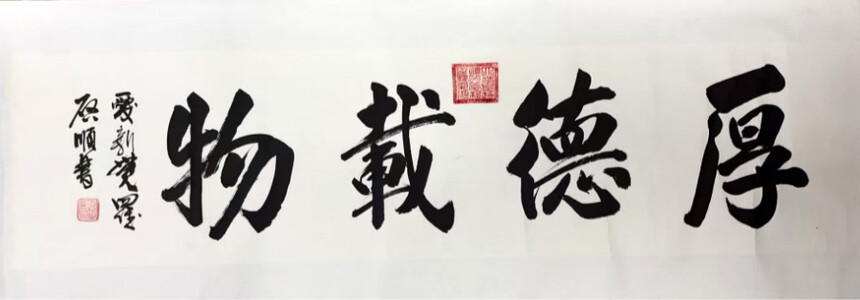 厚德載物
愛新覺羅
啟順書